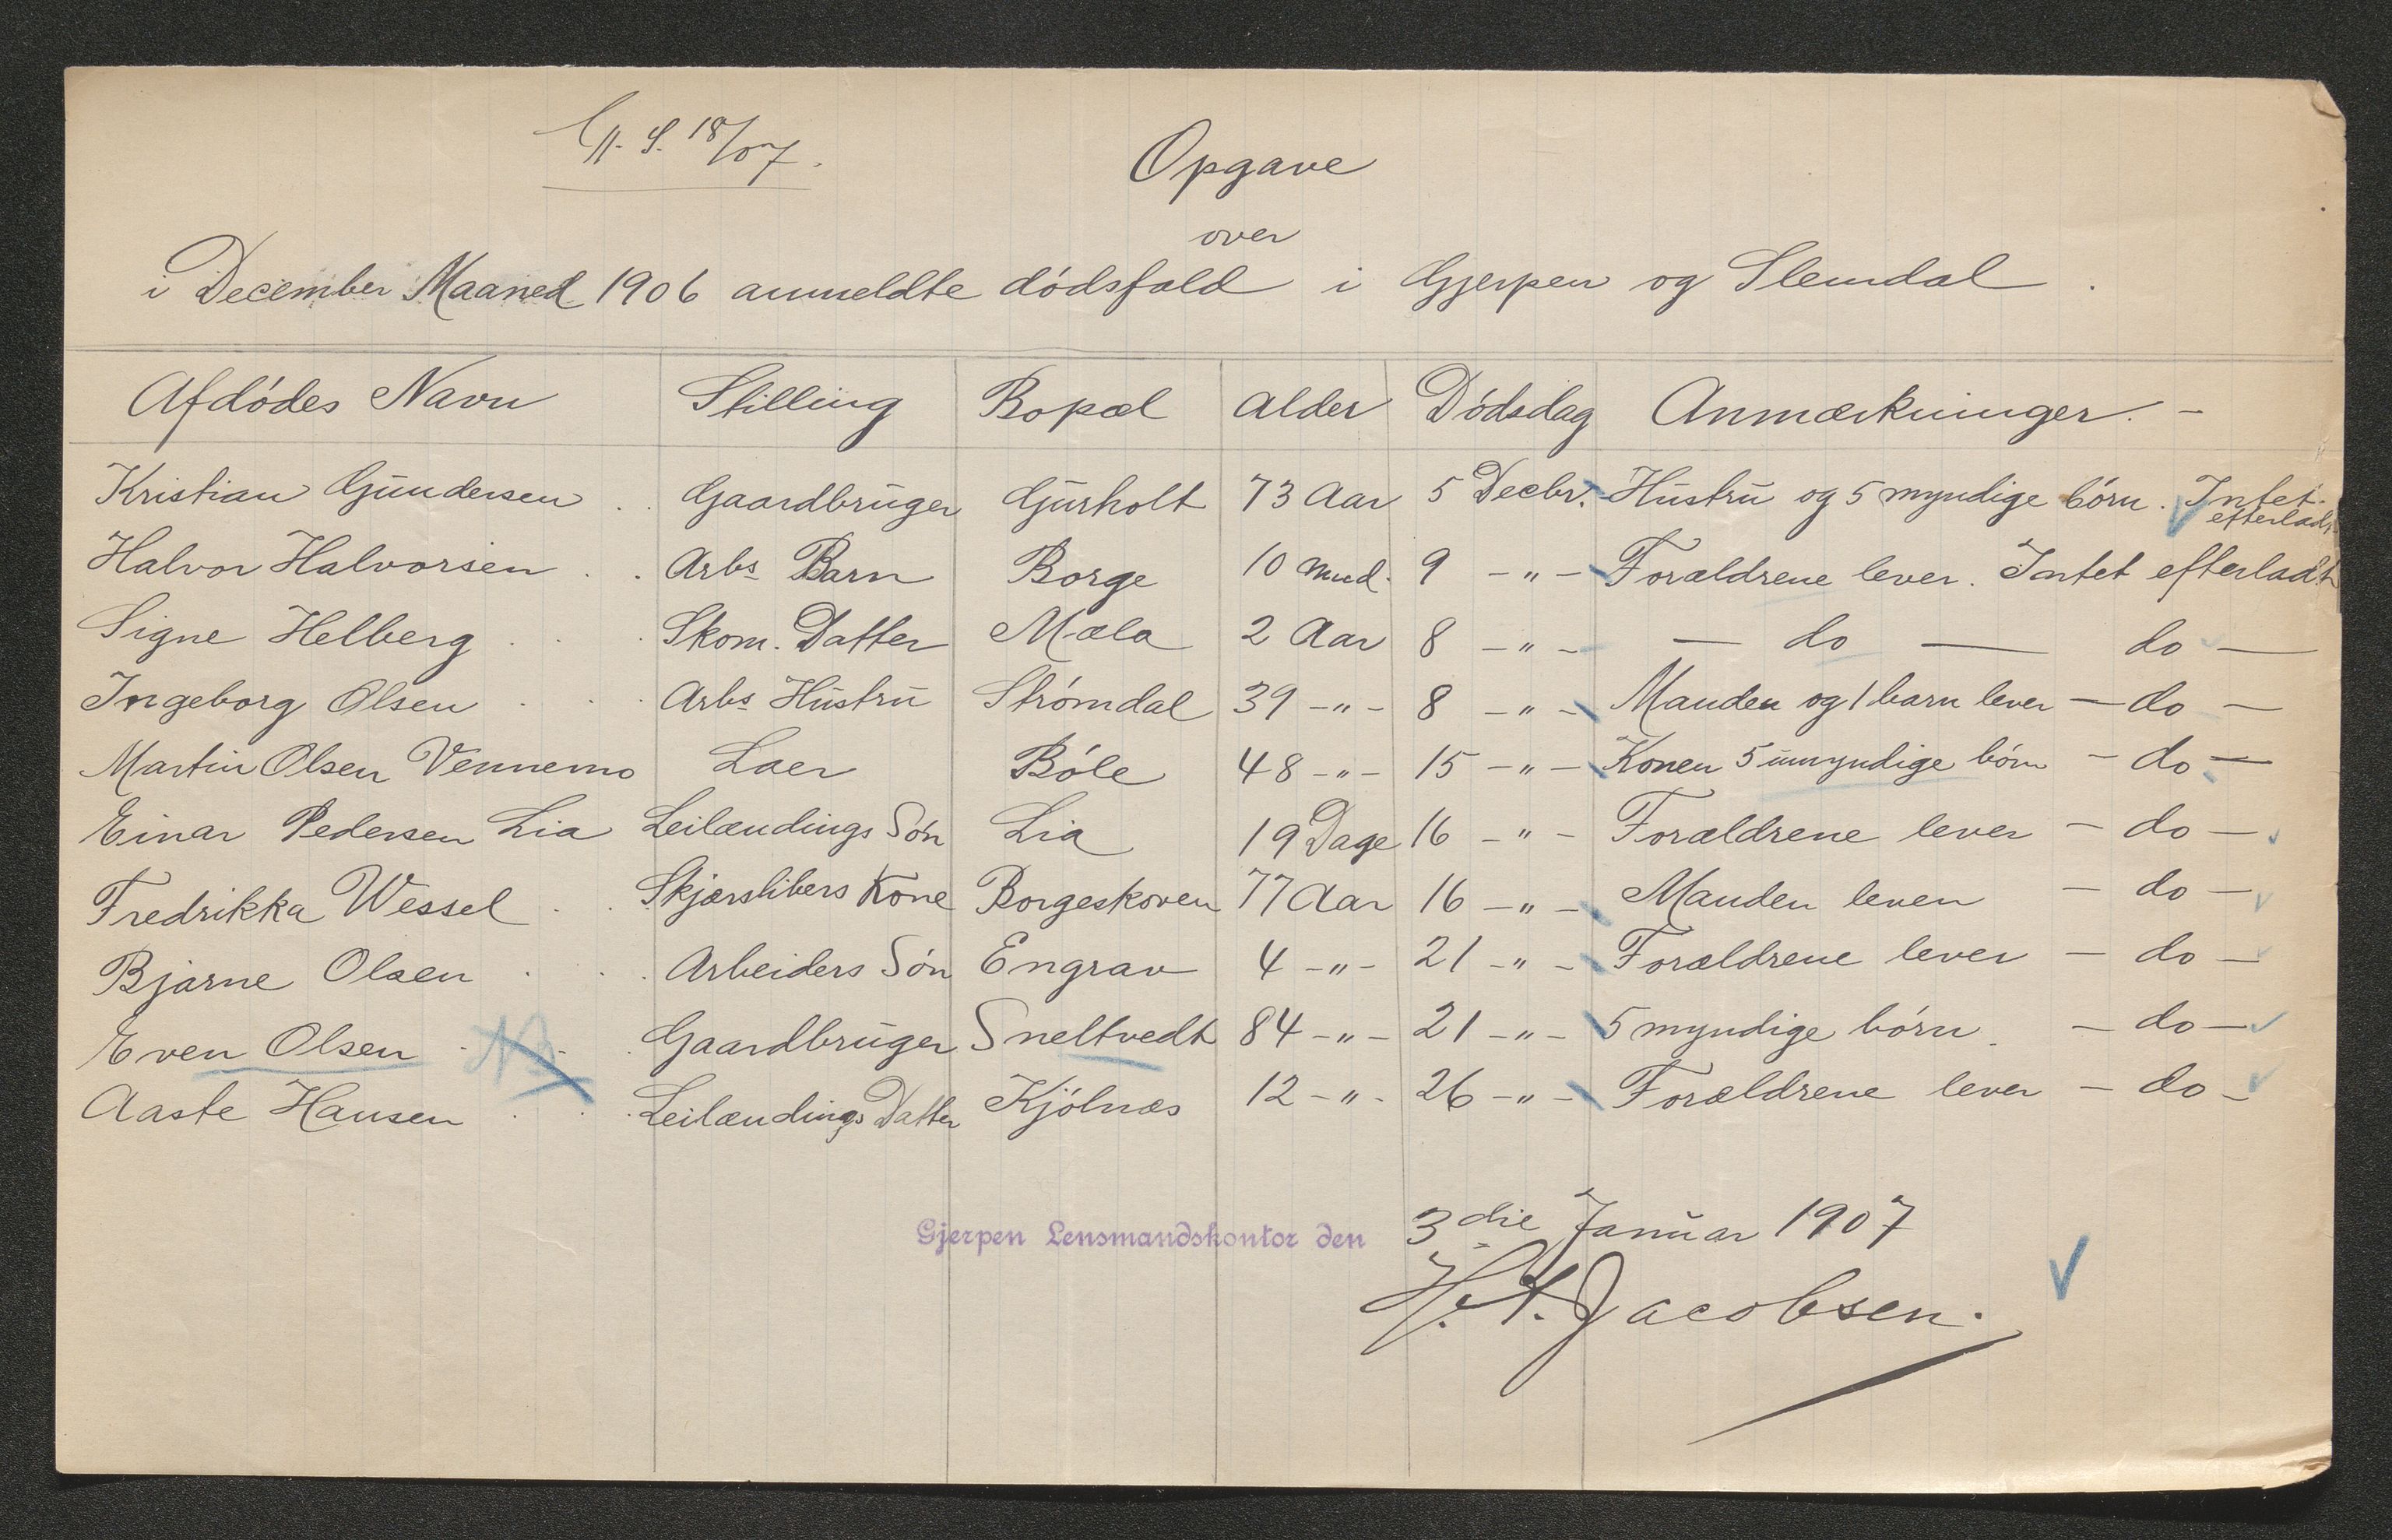 18/07.
Opgave
over
i December Maaned 1906 anmeldte dødsfald i Gjerpen og Slemdal.
Afdødes Navn Stilling Bopæl Alder Dødsdag Anmærkninger. -
Kristian Gundersen . . Gaardbruger Gurholt 73 Aar 5 Decbr. Hustru og 5 myndige børn. Intet efterladt
Halvor Halvorsen . . Arbs Barn Borge 10 Mnd. 9 -"- Forældrene lever. Intet efterladt
Signe Helberg . . . Skom. Datter Mæla 2 Aar 8 -"- — do — do —
Ingeborg Olsen . . . Arbs Hustru Strømdal 39 -"- 8 -"- Manden og 1 barn lever — do —
Martin Olsen Vennemo Laer Bøle 48 -"- 15 -"- Konen 5 umyndige børn - do —
Einar Pedersen Lia Leilændings Søn Lia 19 Dage 16 -"- Forældrene lever - do —
Fredrikka Wessel . . Skjærslibers Kone Borgeskoven 77 Aar 16 -"- Manden lever — do —
Bjarne Olsen . . . Arbeiders Søn Engrav 4 -"- 21 -"- Forældrene lever - do —
Even Olsen . . . Gaardbruger Sneltvedt 84 -"- 21 -"- 5 myndige børn. - do —
Aaste Hansen . . . Leilændings Datter Kjølnæs 12 -"- 26 -"- Forældrene lever - do -
Gjerpen Lensmandskontor den 3die Januar 1907
Jacobsen.